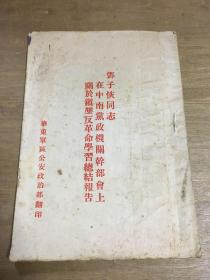 鄧子恢同志
在中南黨政機關幹部會上
關於鎮壓反革命學習總結報告
華東軍區公安政治部翻印